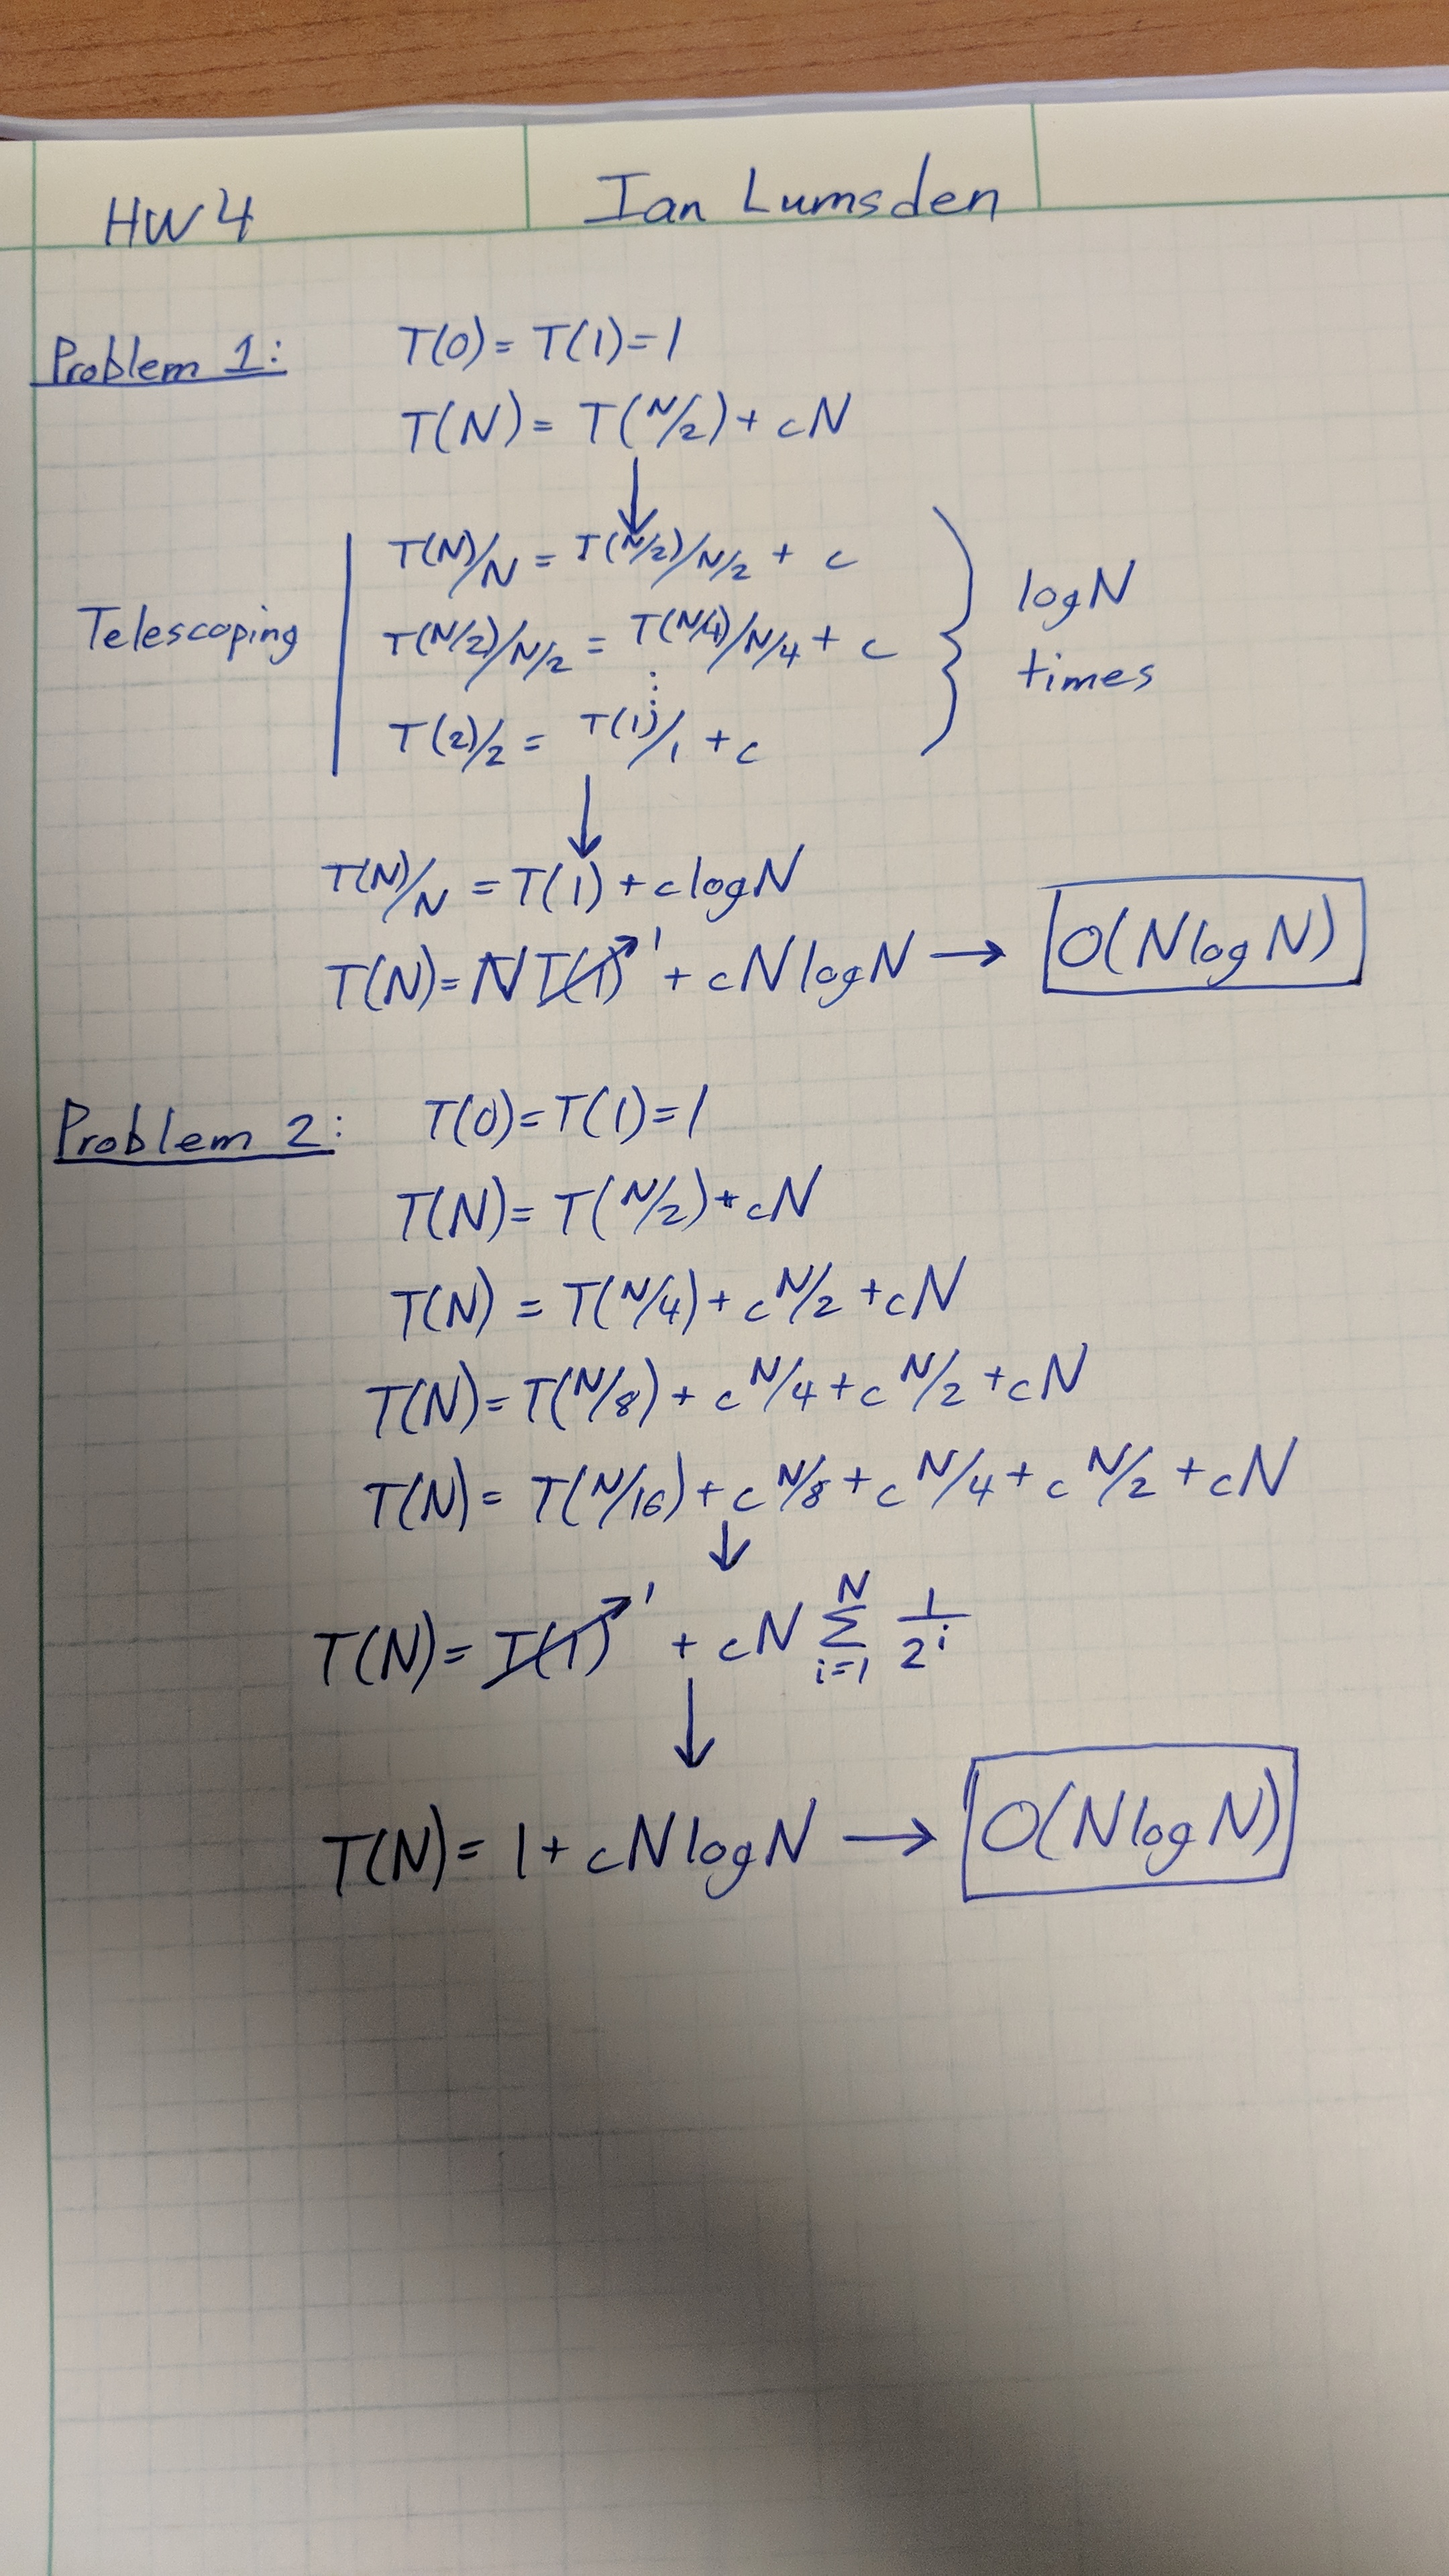 HW4
Ian Lumsden
Problem 1:
T(0) = T(1) = 1
T(N) = T(N/2) + cN
Telescoping
T(N)/N = T(N/2)/N/2 + c
T(N/2)/N/2 = T(N/4)/N/4 + c
⋮
T(2)/2 = T(1)/1 + c
logN
times
T(N)/N = T(1) + clogN
T(N) = N T(1) 1 + cNlogN → O(NlogN)
Problem 2:
T(0) = T(1) = 1
T(N) = T(N/2) + cN
T(N) = T(N/4) + c N/2 + cN
T(N) = T(N/8) + c N/4 + c N/2 + cN
T(N) = T(N/16) + c N/8 + c N/4 + c N/2 + cN
↓
T(N) = T(1) 1 + cN ∑_{i=1}^{N} 1/2^i
↓
T(N) = 1 + cNlogN → O(NlogN)